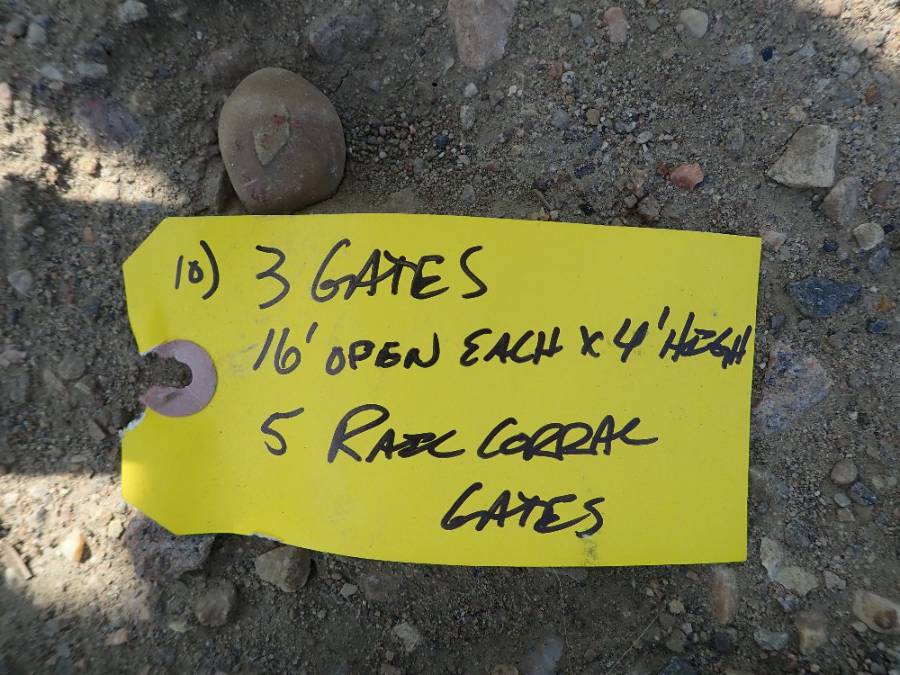 10) 3 GATES
16' OPEN EACH x 4' HIGH
5 RAIL CORRAL
GATES